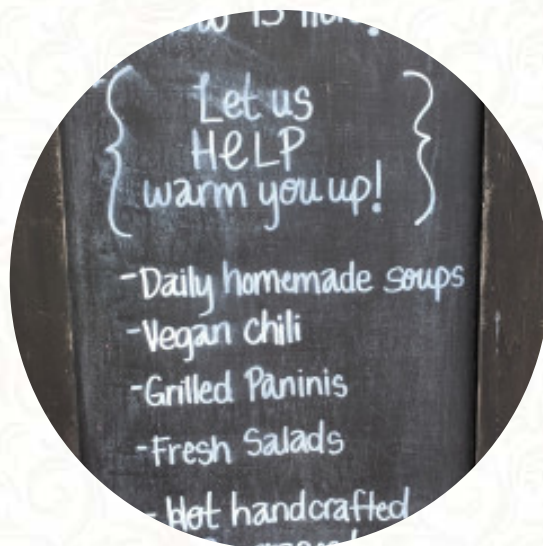 is
{ Let us
HELP
warm you up! }
-Daily homemade soups
-Vegan chili
-Grilled Paninis
-Fresh Salads
- Hot handcrafted